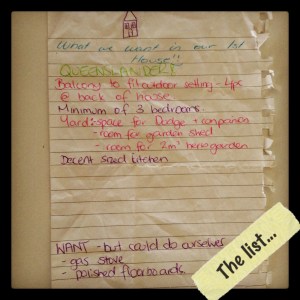 What we want in our 1st
House!!
QUEENSLANDER!
Balcony to fit outdoor setting - 4ps
@ back of house
Minimum of 3 bedrooms
Yard: space for Dodge + companion
- room for garden shed
- room for 2m² herb garden
Decent sized kitchen
WANT - but could do ourselves
- gas stove
- polished floorboards
The list...